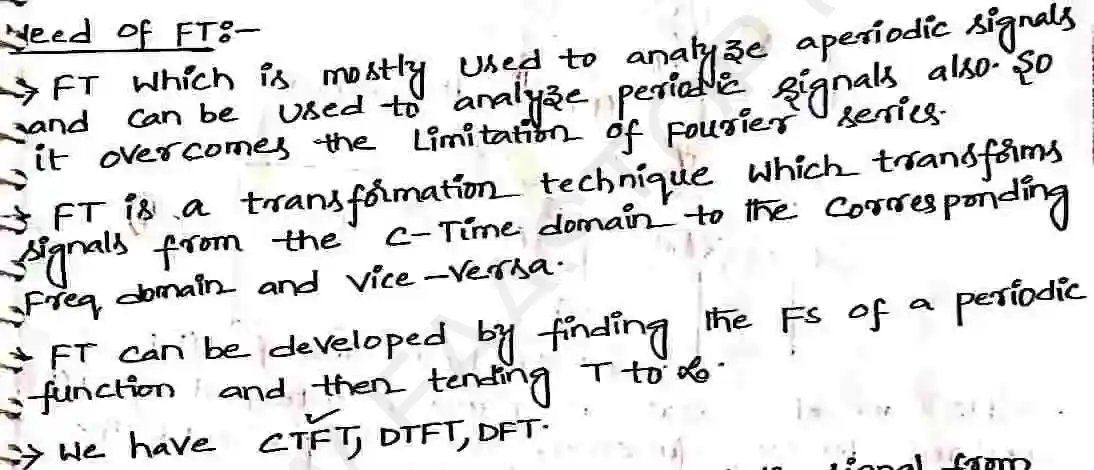 Need of FT:-
→ FT which is mostly used to analyze aperiodic signals
and can be used to analyze periodic signals also. So
it overcomes the Limitation of Fourier series.
→ FT is a transformation technique which transforms
signals from the C-Time domain to the corresponding
Freq domain and vice-versa.
→ FT can be developed by finding the FS of a periodic
function and then tending T to ∞.
→ We have CTFT, DTFT, DFT.
signal from